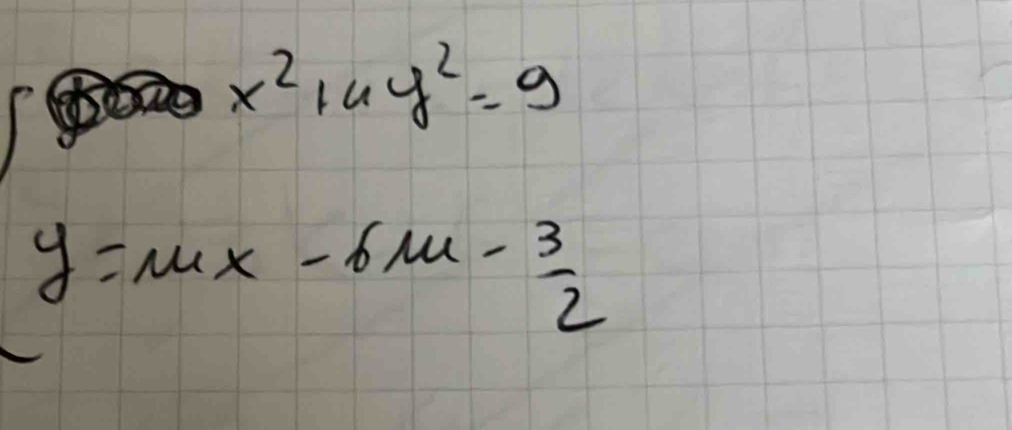 x² + 4y² = 9
y = mx - 6m - 3/2